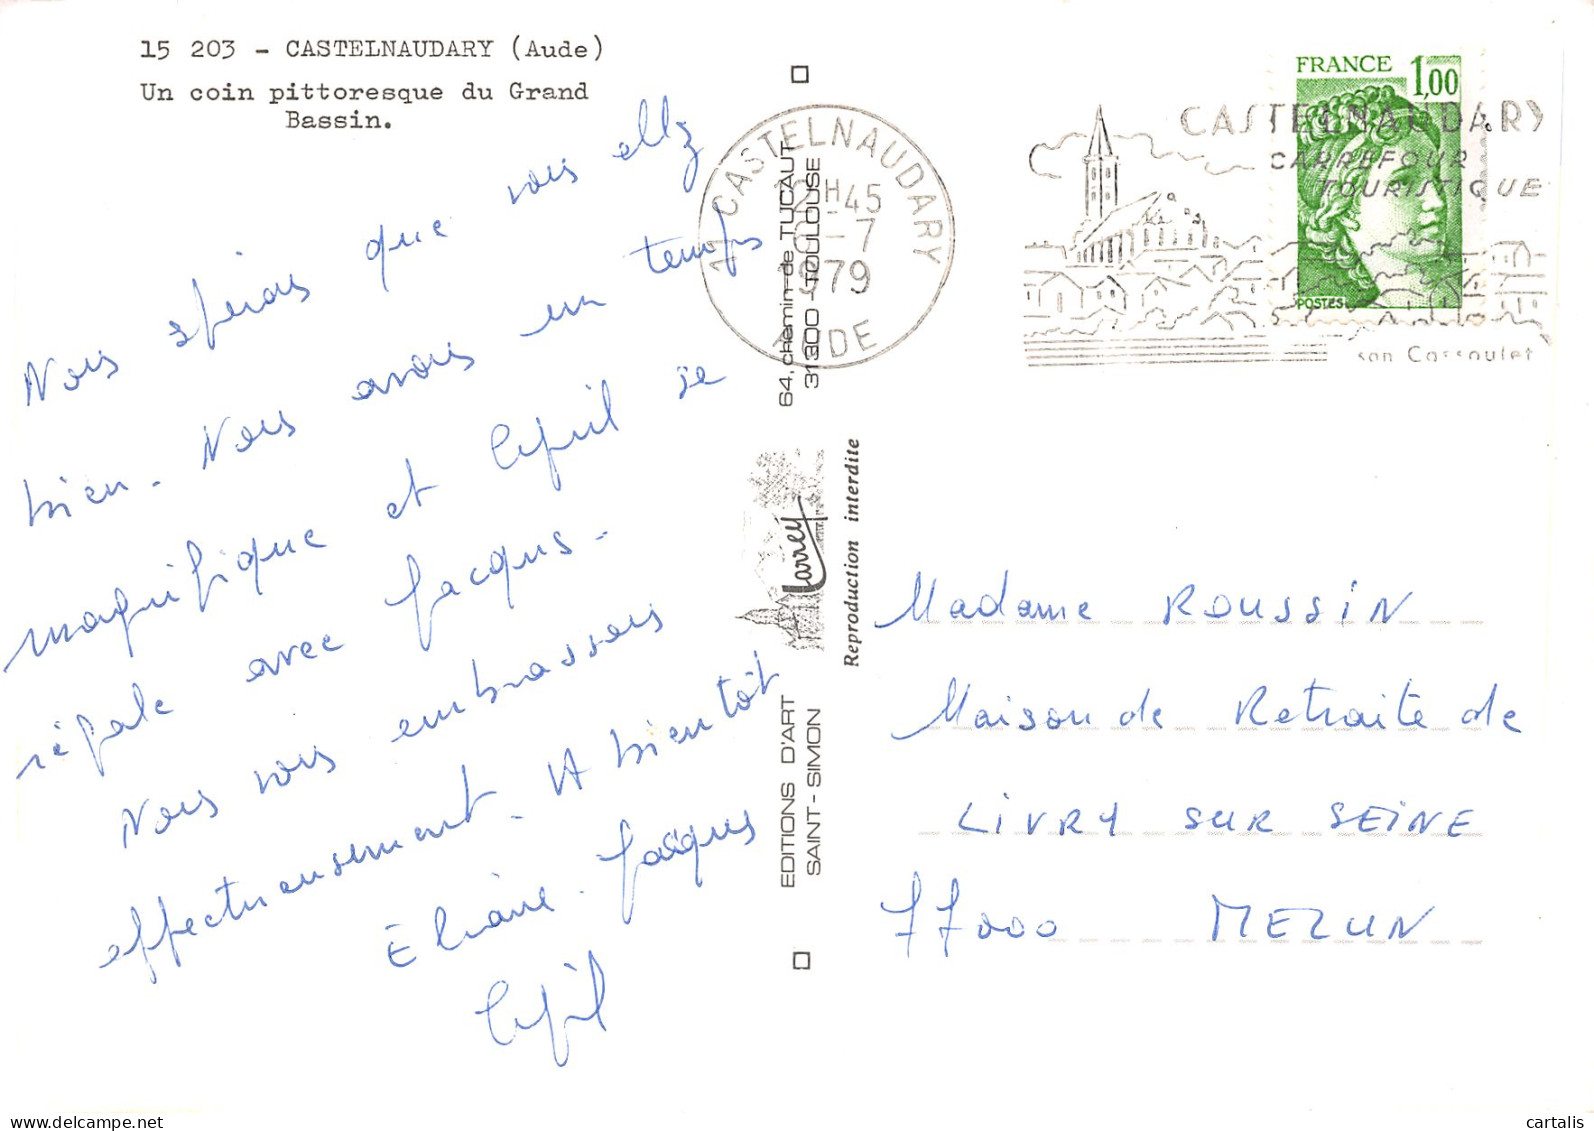 15 203 - CASTELNAUDARY (Aude)
Un coin pittoresque du Grand
Bassin.
Nous spérons que vous allz
bien. Nous avons un temps
magnifique et Cyril se
régale avec Jacques.
Nous vous embrassons
affectueusement. A bientôt
Eliane. Jacques
Cyril
EDITIONS D'ART
SAINT-SIMON
64, chemin de TUCAUT
31300 - TOULOUSE
Larrey
Reproduction interdite
11 CASTELNAUDARY
H45
-7
1979
AUDE
CASTELNAUDARY
CARREFOUR
TOURISTIQUE
son Cassoulet
FRANCE 1,00
POSTES
Madame ROUSSIN
Maison de Retraite de
LIVRY SUR SEINE
77000 MELUN
www.delcampe.net
cartalis